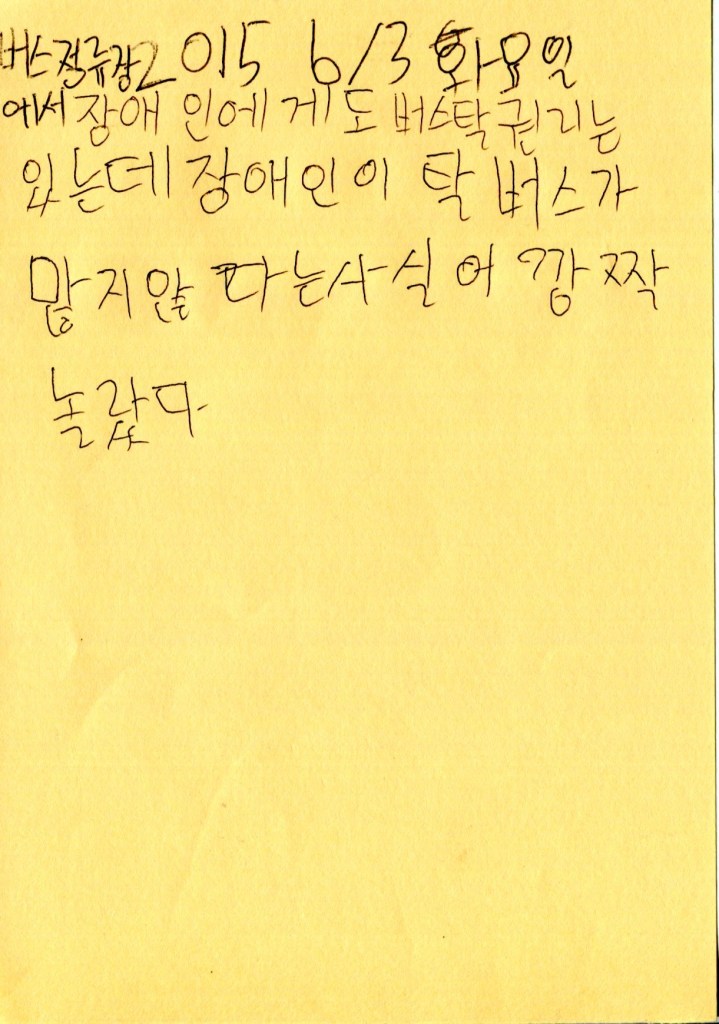 버스정류장2015 6/3 화요일
에서 장애인에게도 버스탁 권리는
있는데 장애인이 탈 버스가
많지 않다는 사실어 깜짝
놀랐다